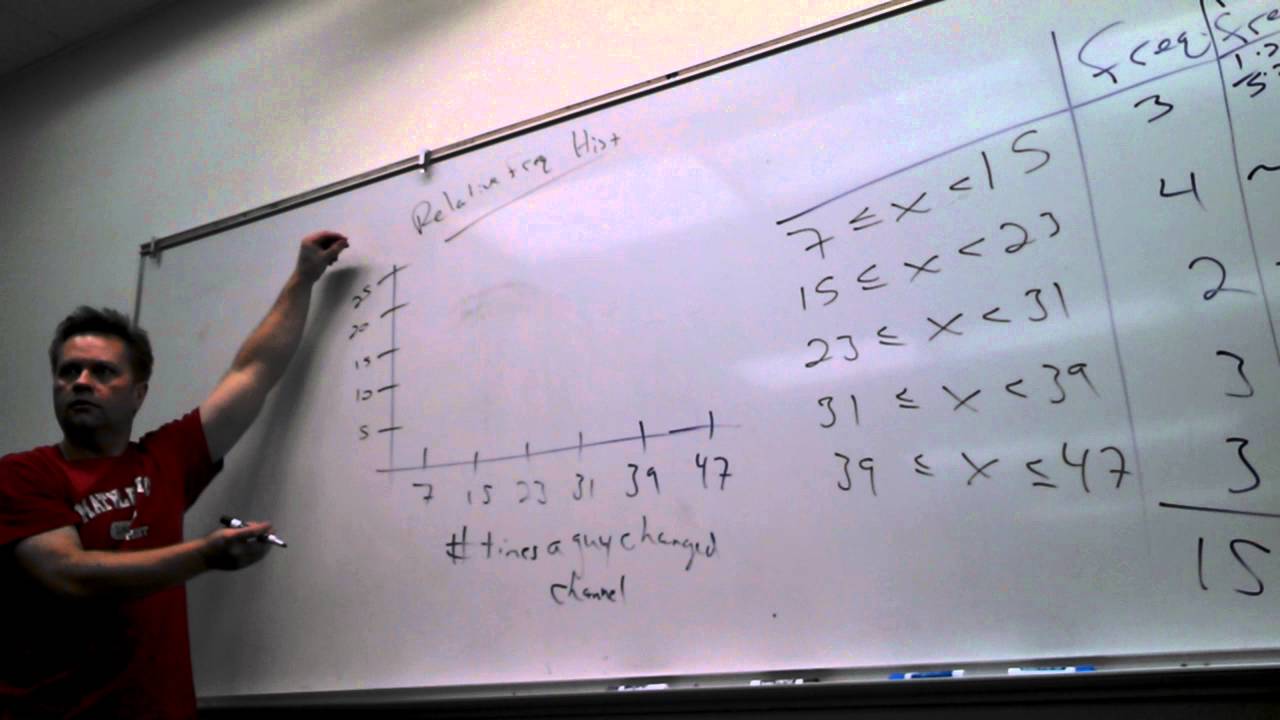 Relative freq Hist
25
20
15
10
5
7 15 23 31 39 47
# times a guy changed
channel
freq.
7 ≤ x < 15 3
15 ≤ x < 23 4
23 ≤ x < 31 2
31 ≤ x < 39 3
39 ≤ x ≤ 47 3
15